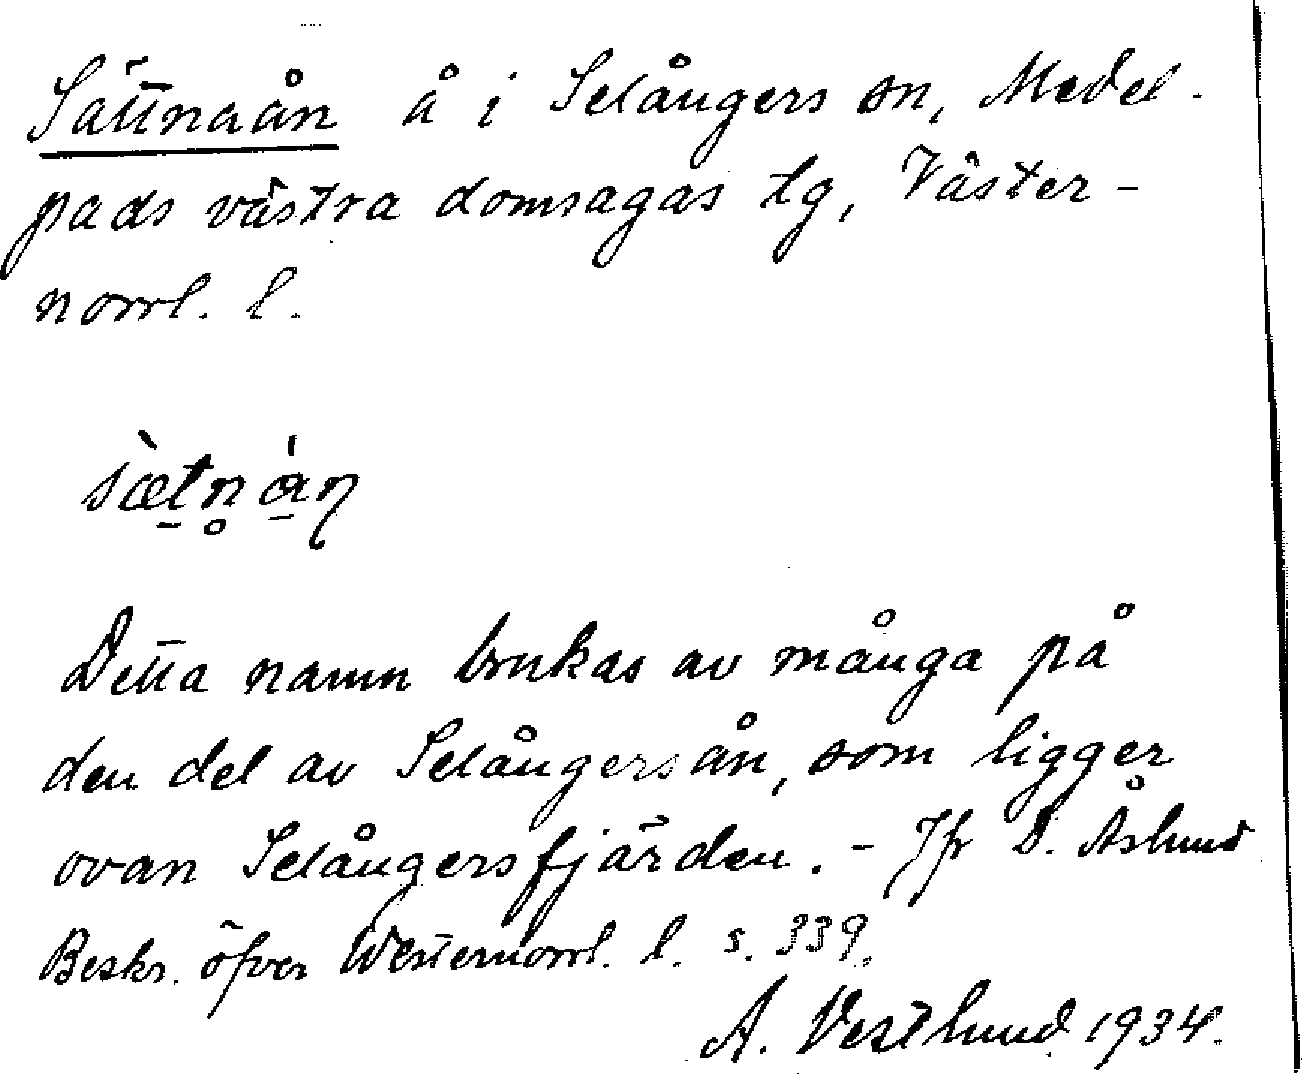 Sättnaån å i Selångers sn, Medel-
pads västra domsagas tg, Väster-
norrl. l.
sæ̀tnån
Detta namn brukas av många på
den del av Selångersån, som ligger
ovan Selångersfjärden. - Jfr D. Åslund
Beskr. öfver Westernorrl. l. s. 339.
A. Vestlund 1934.